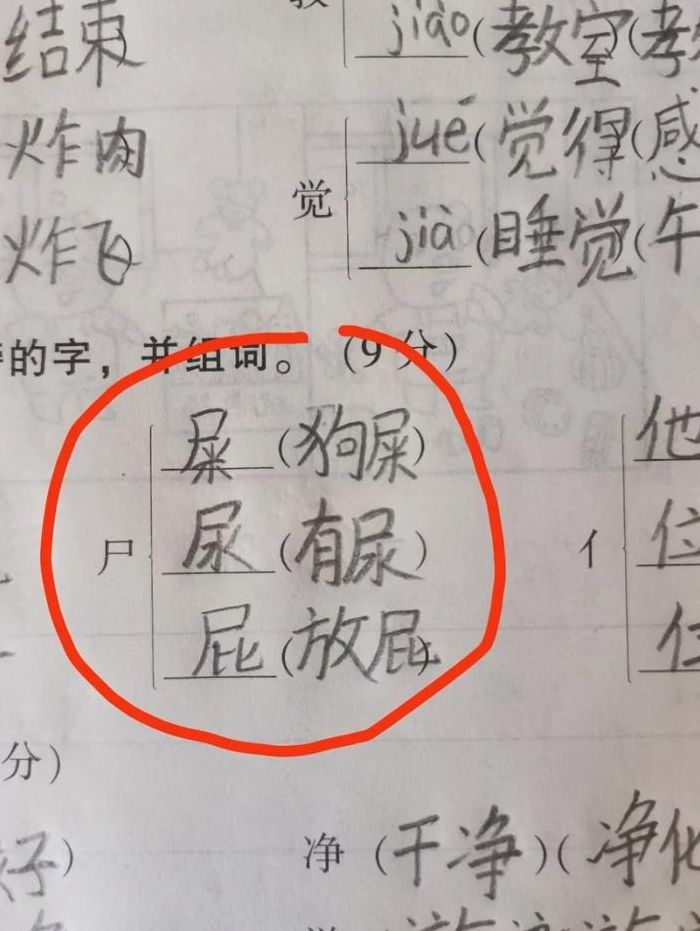 结束
jiào(教室)(
炸肉
觉
jué(觉得(感
炸飞
jiào(睡觉(午
的字，并组词。（9分）
尸
屎(狗屎)
尿(有尿)
屁(放屁)
亻
他
位
分）
子)
净（干净)(净化